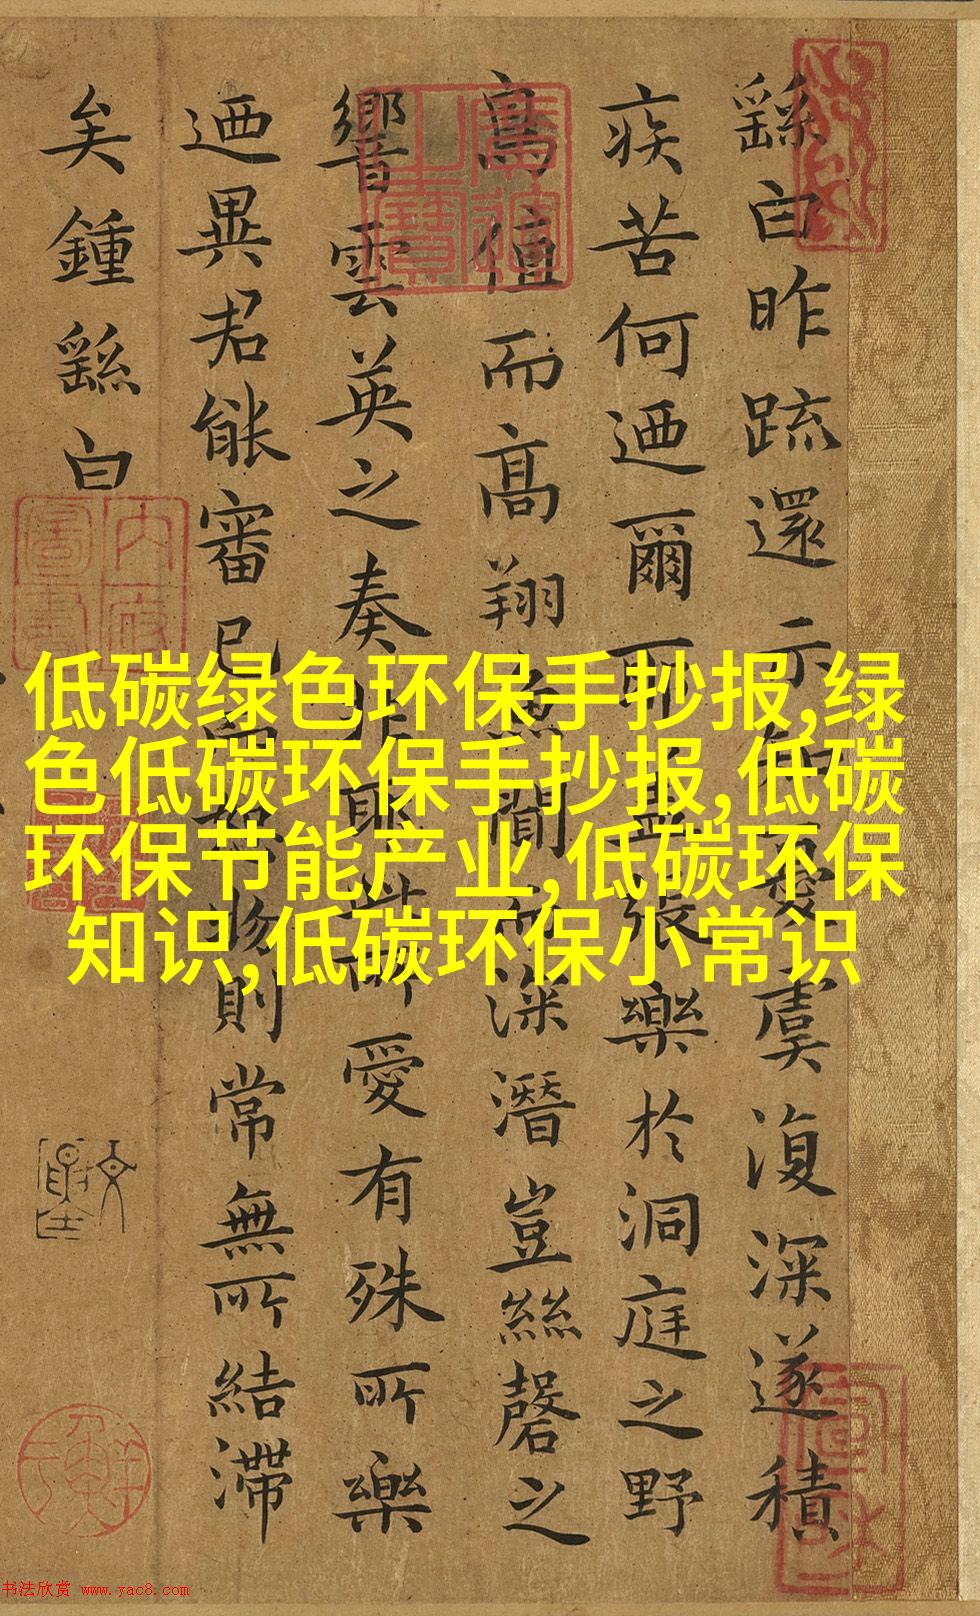 繇白昨疏還示知憂虞復深遂積
疾苦何迺爾耶蓋張樂於洞庭之野
鳥值而高翔魚聞而深潛豈絲磬之
響雲英之奏非耶此所愛有殊所樂
迺異君能審己而恕物則常無所結滯
矣鍾繇白
低碳绿色环保手抄报,绿
色低碳环保手抄报,低碳
环保节能产业,低碳环保
知识,低碳环保小常识
书法欣赏 www.yac8.com